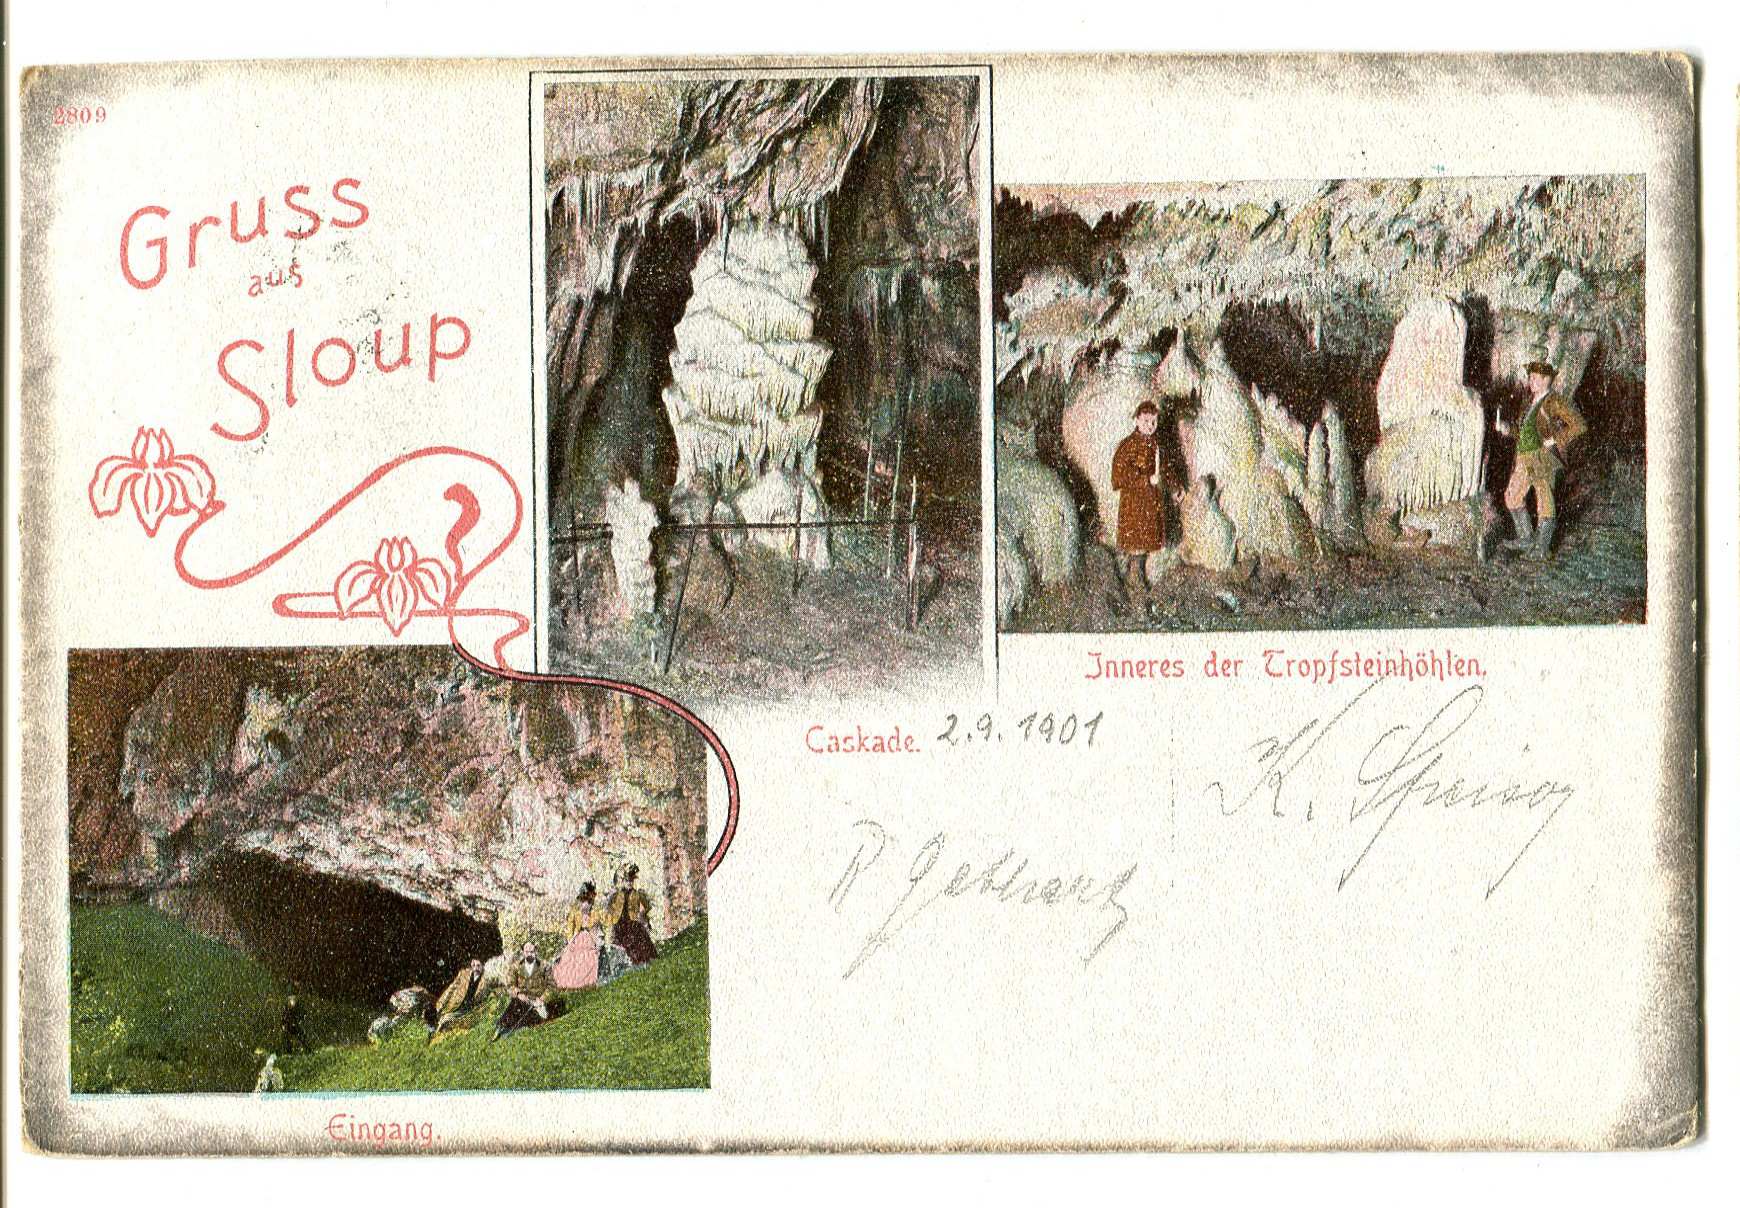 2809
Gruss
aus
Sloup
Inneres der Tropfsteinhöhlen.
Caskade. 2.9.1901
K.
Eingang.